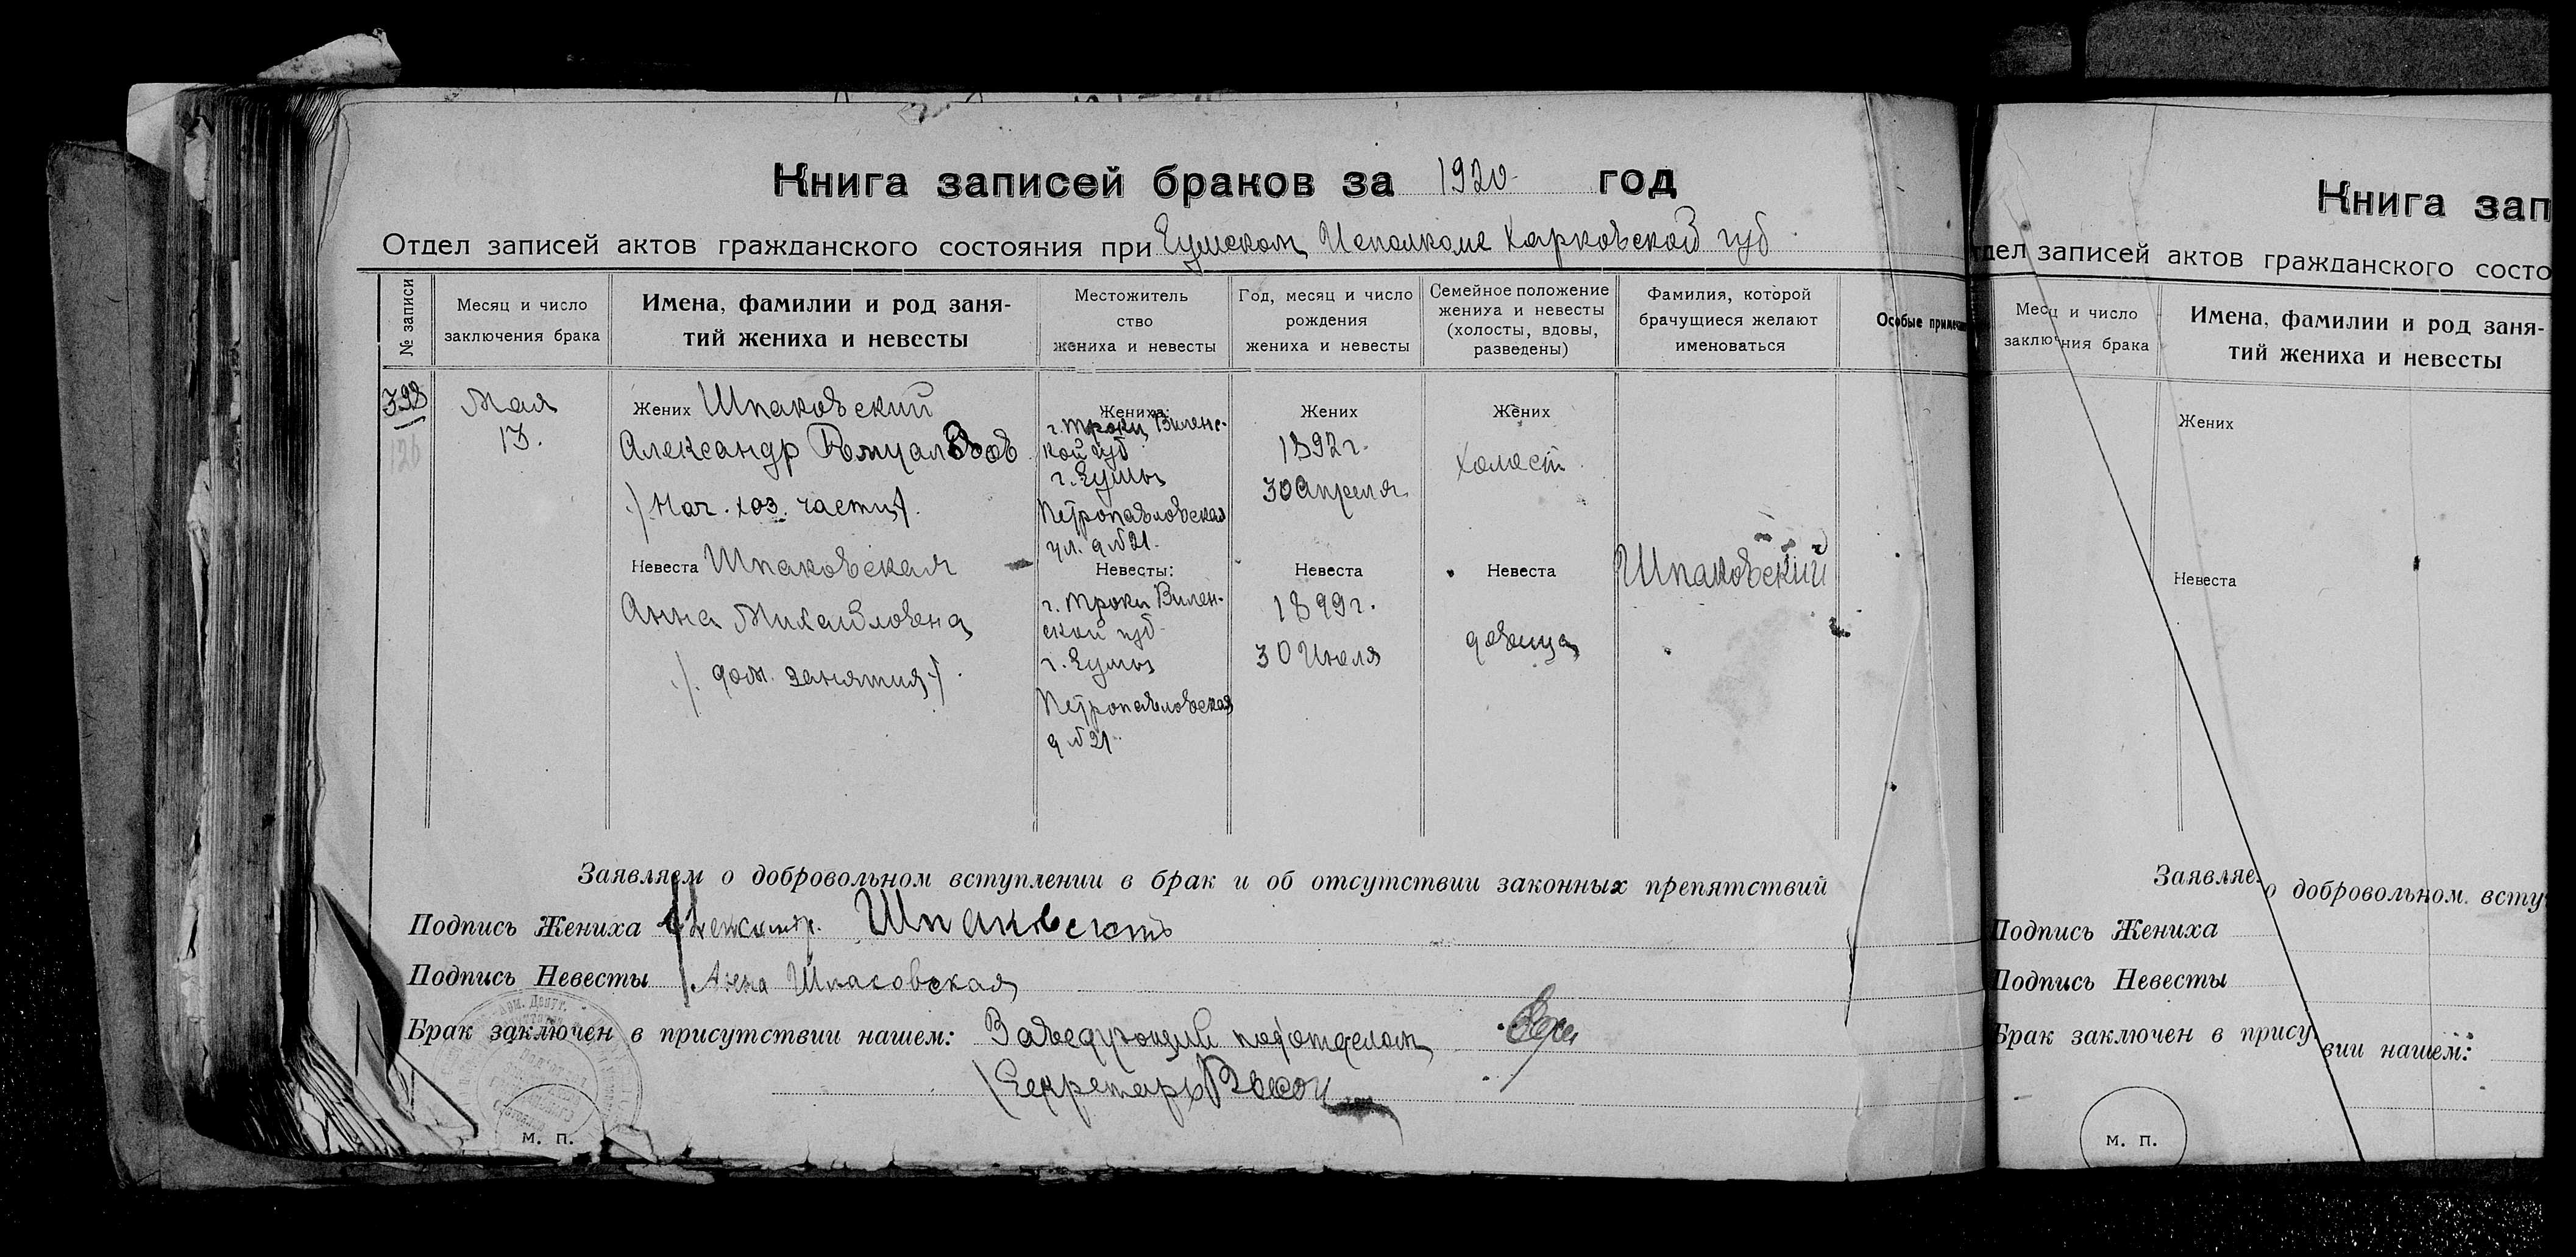 Книга записей браков за 1920 год
Отдел записей актов гражданского состояния при Сумском Исполкоме Харковской губ
№ записи
Месяц и число
заключения брака
Имена, фамилии и род заня-
тий жениха и невесты
Местожитель
ство
жениха и невесты
Год, месяц и число
рождения
жениха и невесты
Семейное положение
жениха и невесты
(холосты, вдовы,
разведены)
Фамилия, которой
брачущиеся желают
именоваться
Особые
Мая
13.
Жених Шпаковский
Александр Ромуальдов
/Нач. хоз. части/.
Невеста Шпаковская
Анна Михайловна
/. дом. занятия/.
Жениха:
г. Троки Виленс-
кой губ
г. Сумы
Петропавловская
ул. д №21.
Невесты:
г. Троки Вилен-
ской губ
г. Сумы
Петропавловская
д №21.
Жених
1892 г.
30 Апреля
Невеста
1899 г.
30 Июля
Жених
холост
Невеста
девица
Шпаковский
Заявляем о добровольном вступлении в брак и об отсутствии законных препятствий
Подпись Жениха Александр. Шпаковский
Подпись Невесты Анна Шпаковская
Брак заключен в присутствии нашем: Заведующий подотделом
Секретарь
м. п.
Книга зап
дел записей актов гражданского состо
Месяц и число
заключения брака
Имена, фамилии и род заня-
тий жениха и невесты
Жених
Невеста
Заявляе о добровольном. всту
Подпись Жениха
Подпись Невесты
Брак заключен в прису вии нашем:
м. п.